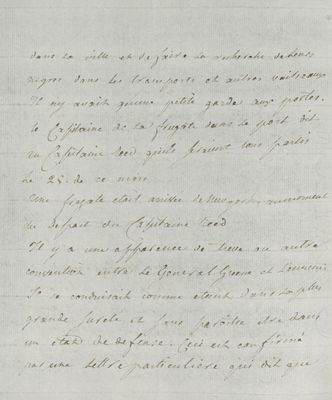 dans la ville et de faire la recherche de leurs
negres dans les transports et autres vaisseaux
Il ny avait qu'une petite garde aux portes.
le Capitaine de la fregate dans le port dit
au Capitaine qu'ils seraient tous partis
Le 25. de ce mois.
Une fregate etait arrivée de au moment
du depart du Capitaine
Il y a une apparence de treve ou autre
convention entre Le General Greene et l'ennemi
Il se conduisait comme etant dans la plus
grande sureté et sans paroître etre dans
un etat de defense. Ceci est confirmé
par une lettre particuliere qui dit que